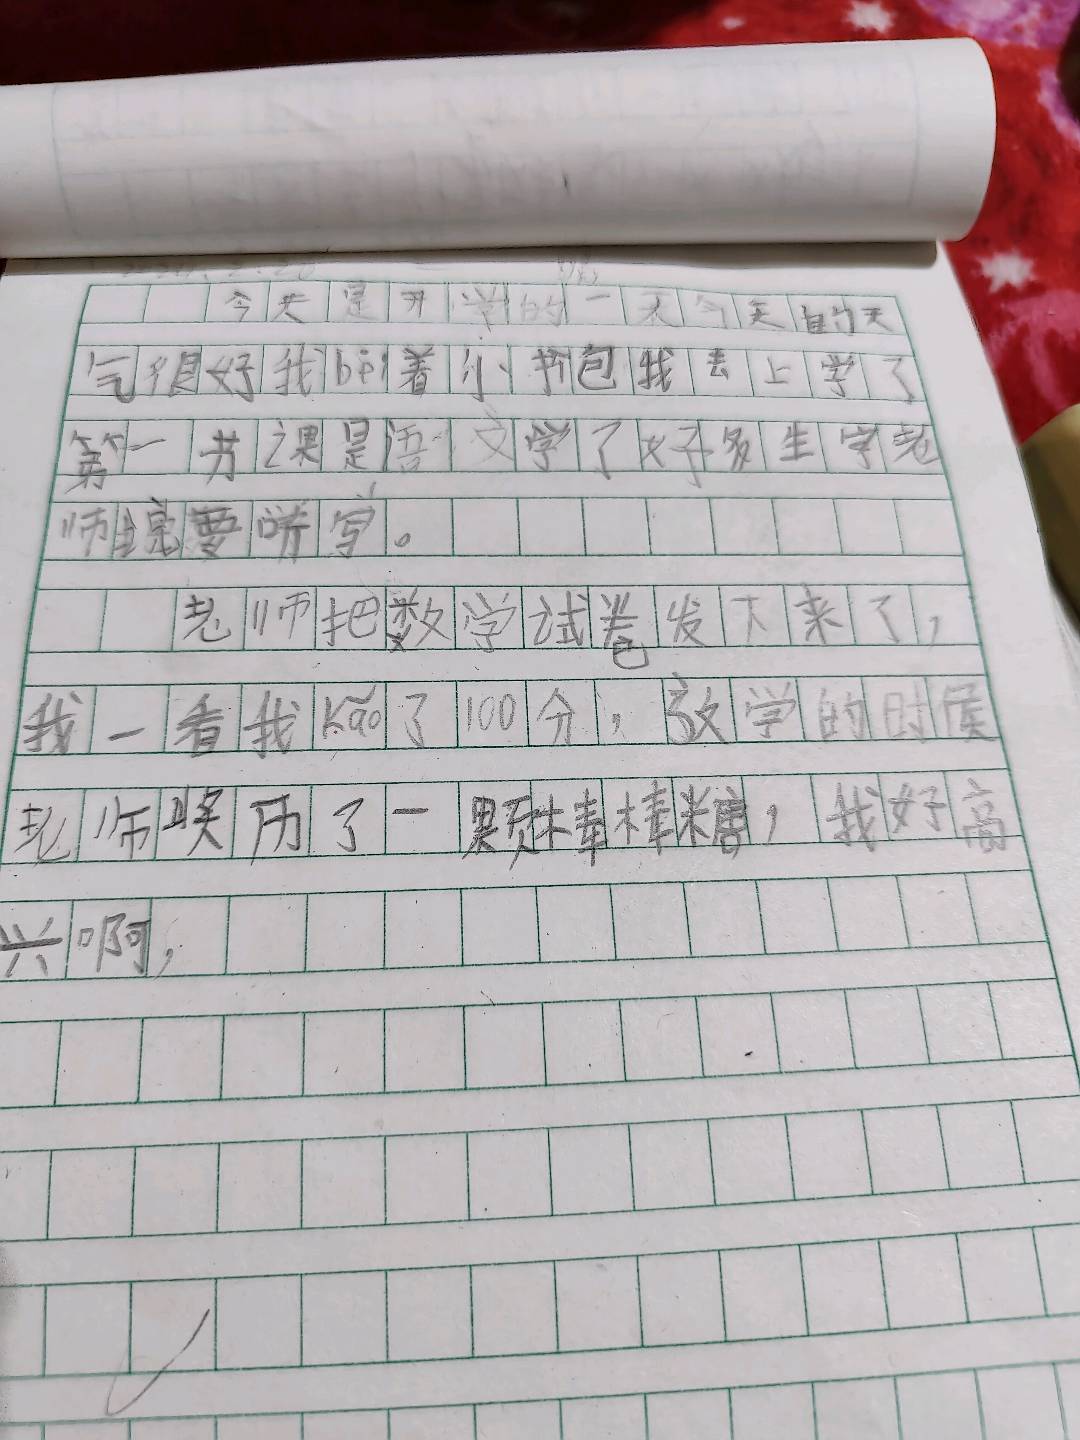 今天是开学的一天今天的天
气很好我bēi着小书包我去上学了
第一节课是语文学了好多生字老
师说要听写。
老师把数学试卷发下来了，
我一看我kǎo了100分，放学的时候
老师奖历了一颗棒棒糖，我好高
兴啊，